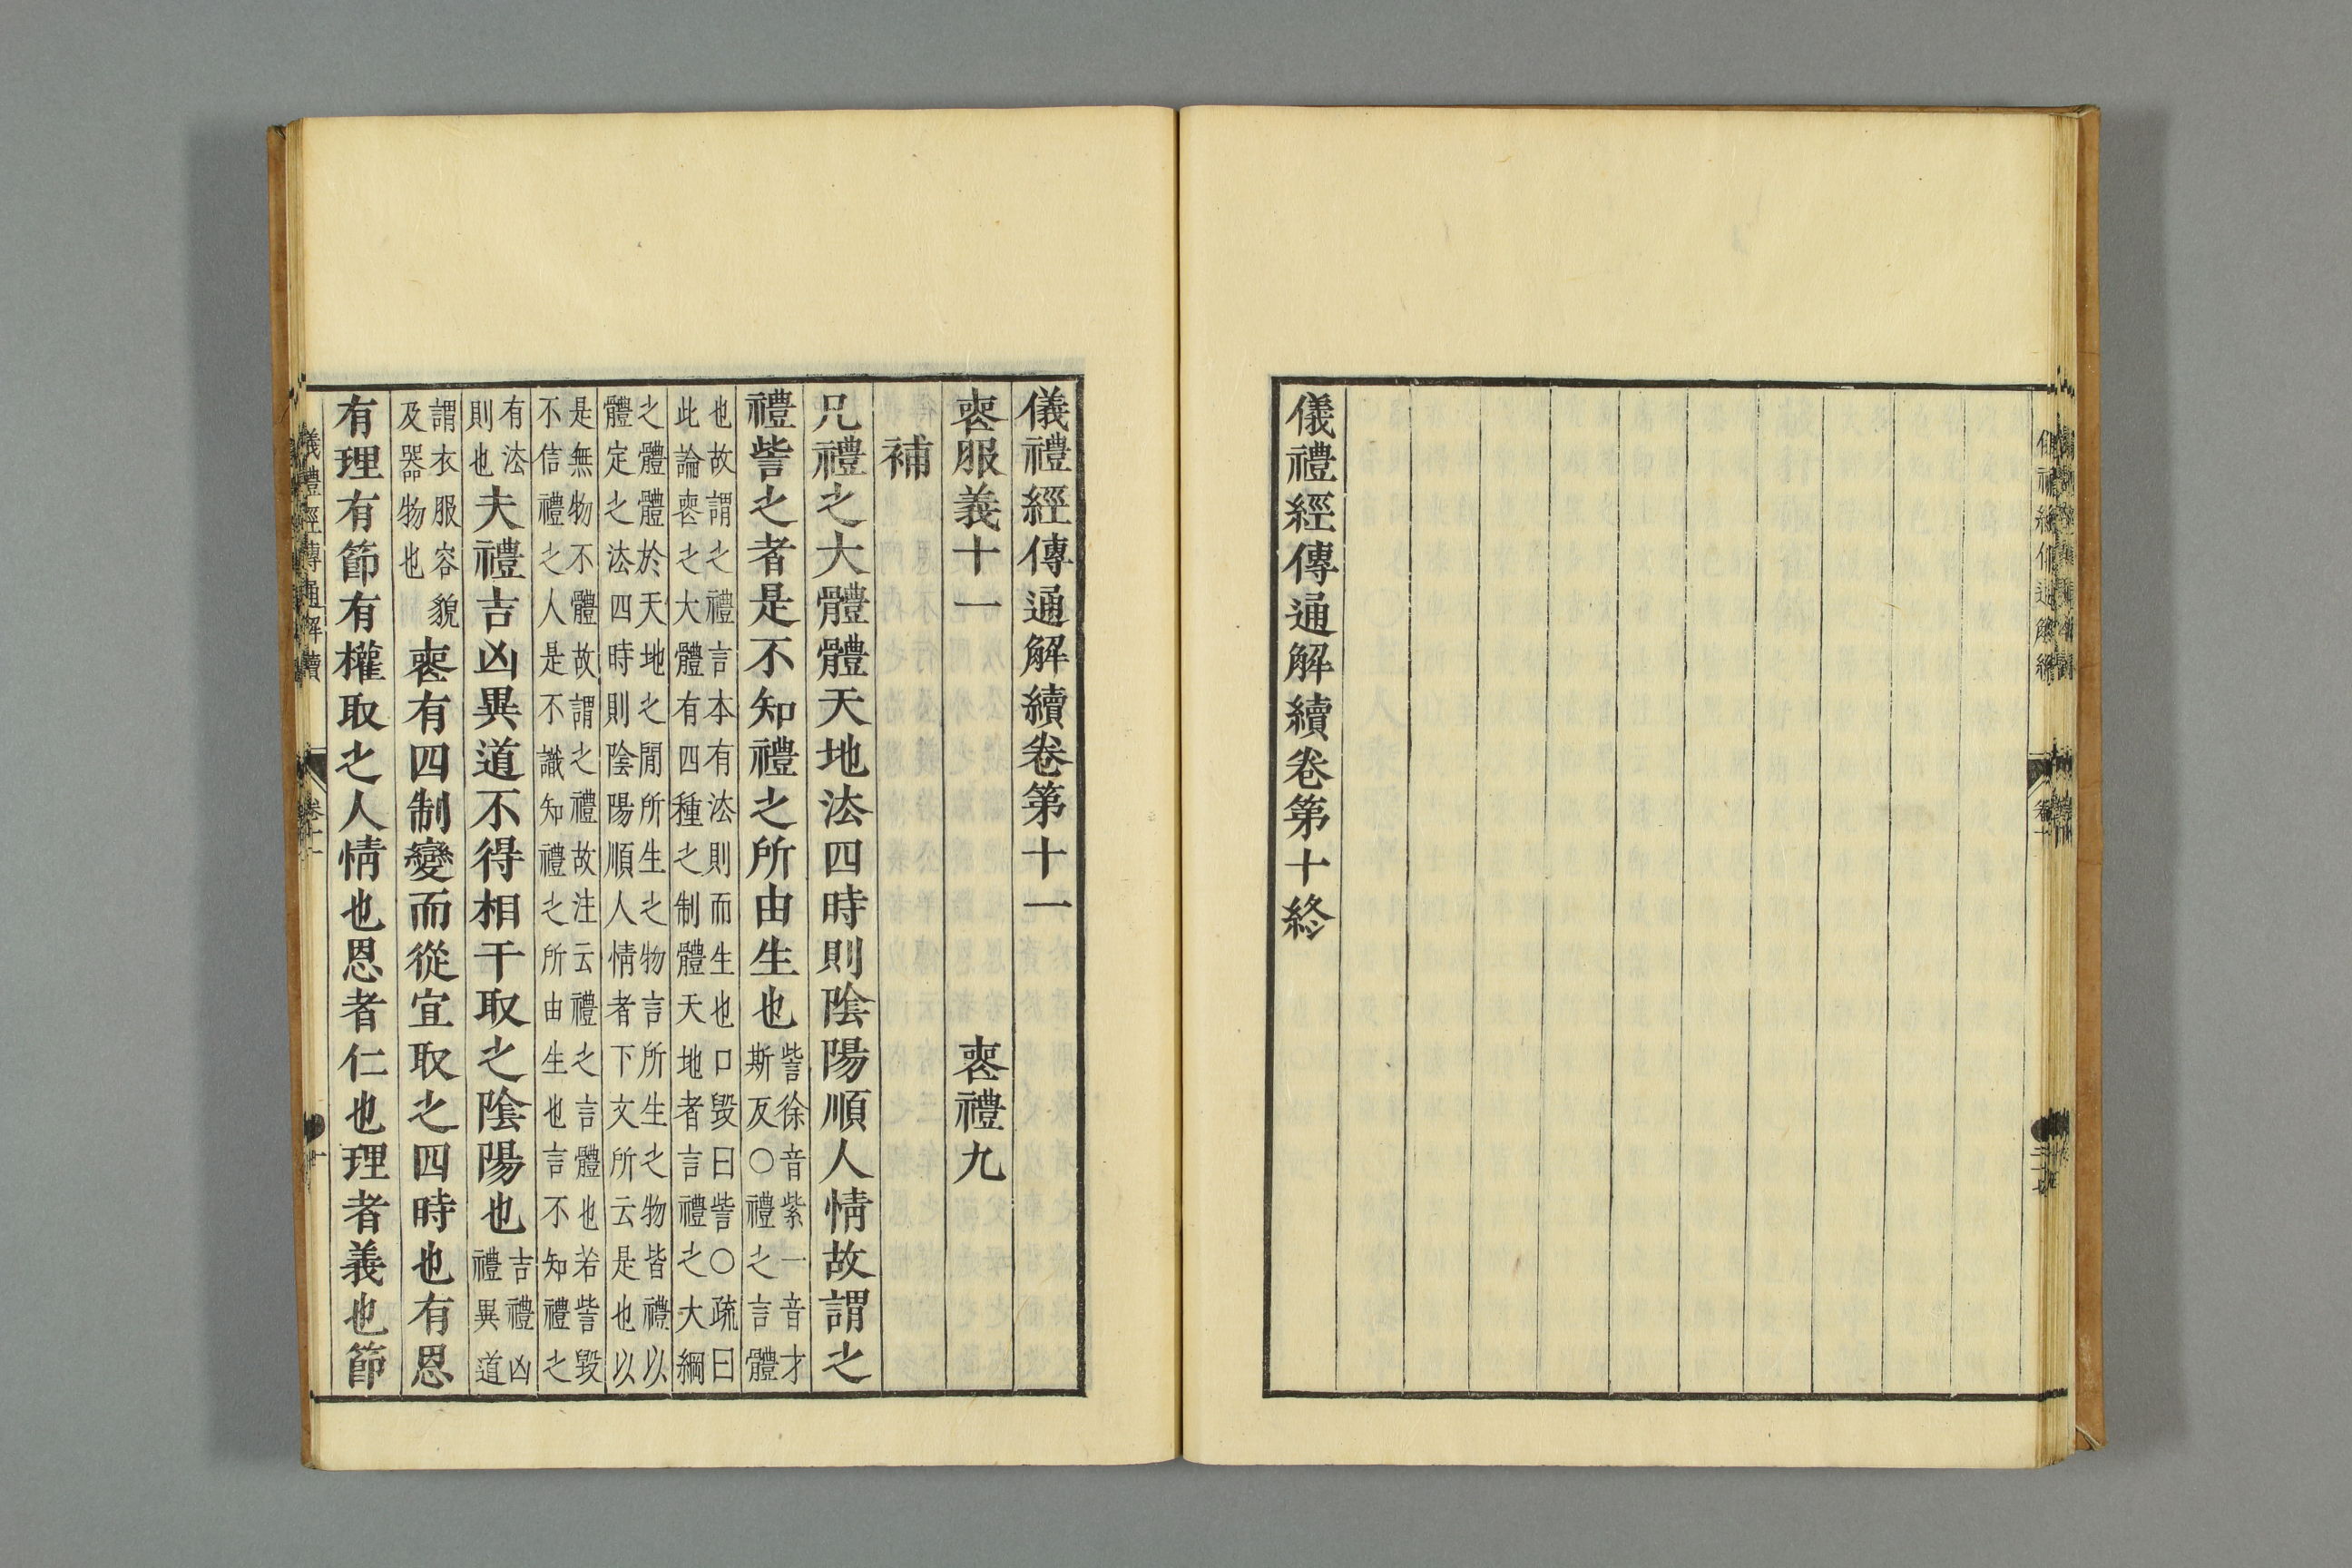 儀禮經傳通解續卷第十終
儀禮經傳通解續卷第十一
喪服義十一　喪禮九
補
凡禮之大體體天地法四時則陰陽順人情故謂之
禮訾之者是不知禮之所由生也
訾徐音紫一音才
斯反〇禮之言體
也故謂之禮言本有法則而生也口毀曰訾〇疏曰
此論喪之大體有四種之制體天地者言禮之大綱
之體體於天地之閒所生之物言所生之物皆禮以
體定之法四時則陰陽順人情者下文所云是也以
是無物不體故謂之禮故注云禮之言體也若訾毀
不信禮之人是不識知禮之所由生也言不知禮之
有法
則也
夫禮吉凶異道不得相干取之陰陽也
吉禮凶
禮異道
謂衣服容貌
及器物也
喪有四制變而從宜取之四時也有恩
有理有節有權取之人情也恩者仁也理者義也節
儀禮經傳通解續
卷十一
一